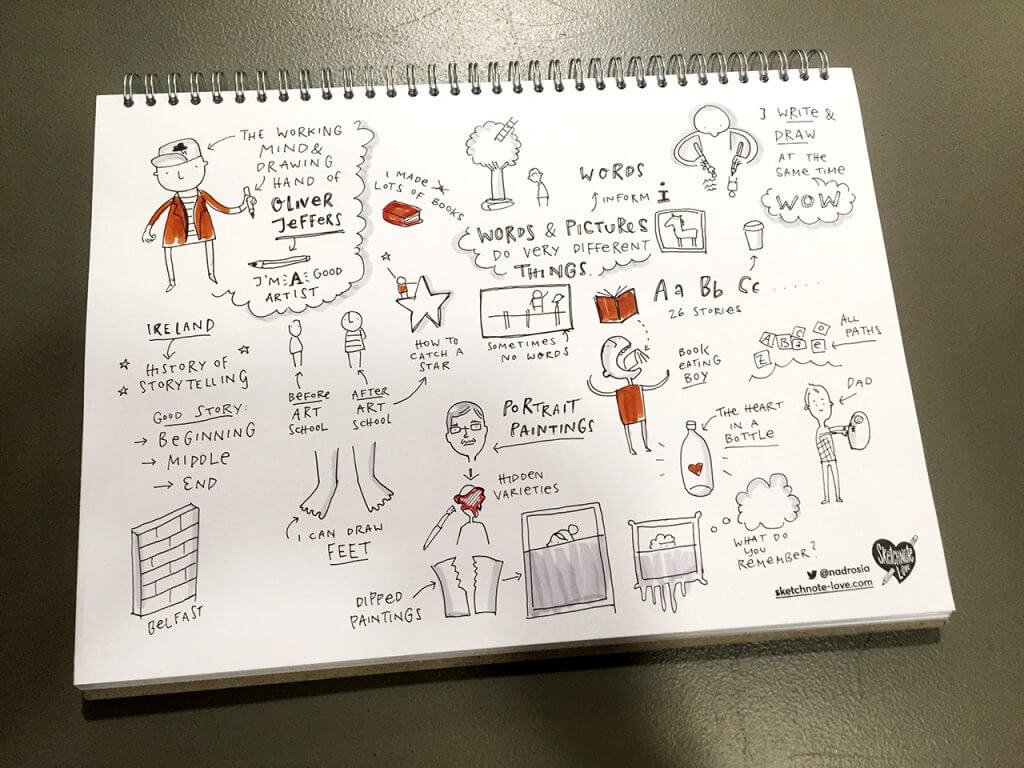 THE WORKING
MIND &
DRAWING
HAND OF
OLIVER
JEFFERS
I'M A GOOD
ARTIST
I MADE
LOTS OF BOOKS
WORDS
INFORM i
WORDS & PICTURES
DO VERY DIFFERENT
THINGS.
I WRITE &
DRAW
AT THE
SAME TIME
WOW
IRELAND
HISTORY OF
STORYTELLING
GOOD STORY:
→ BEGINNING
→ MIDDLE
→ END
BEFORE
ART
SCHOOL
AFTER
ART
SCHOOL
HOW TO
CATCH A
STAR
SOMETIMES
NO WORDS
Aa Bb Cc ......
26 STORIES
BOOK
EATING
BOY
ALL
PATHS
A B C D
Z a e
DAD
THE HEART
IN A
BOTTLE
PORTRAIT
PAINTINGS
HIDDEN
VARIETIES
I CAN DRAW
FEET
BELFAST
DIPPED
PAINTINGS
WHAT DO
YOU
REMEMBER?
SKETCHNOTE
LOVE
@nadrosia
sketchnote-love.com